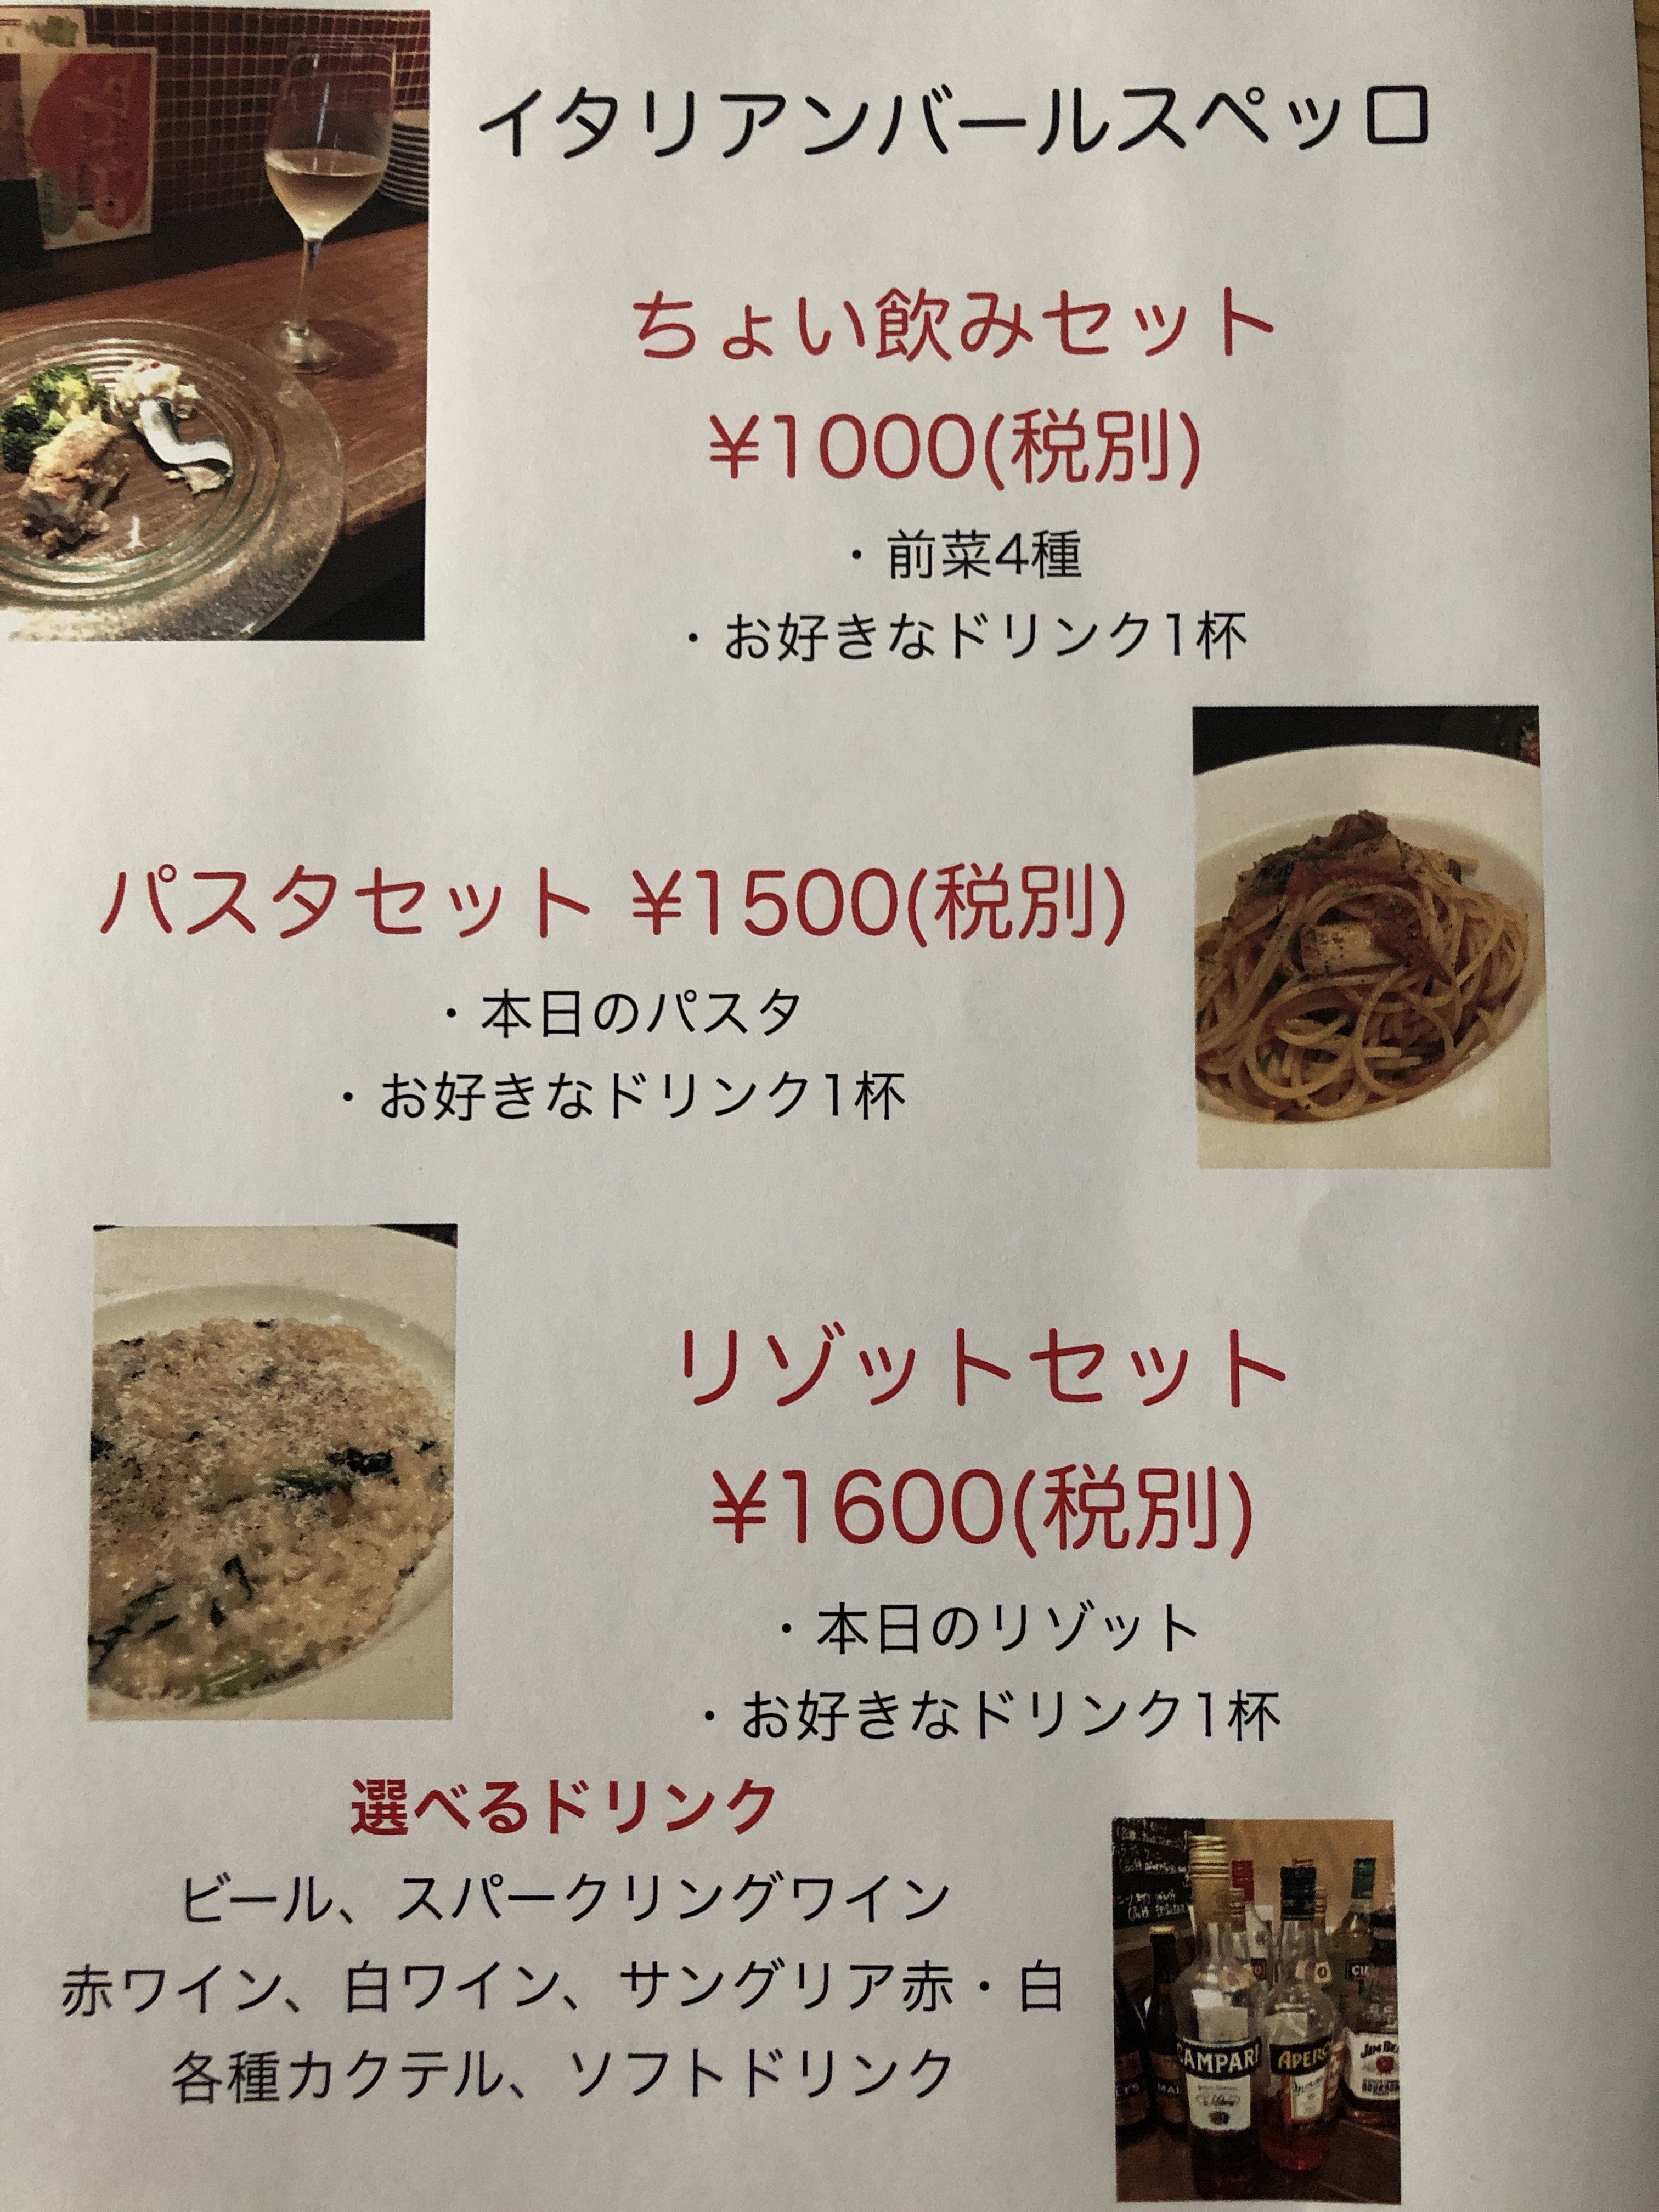 イタリアンバールスペッロ
ちょい飲みセット
¥1000(税別)
・前菜4種
・お好きなドリンク1杯
パスタセット ¥1500(税別)
・本日のパスタ
・お好きなドリンク1杯
リゾットセット
¥1600(税別)
・本日のリゾット
・お好きなドリンク1杯
選べるドリンク
ビール、スパークリングワイン
赤ワイン、白ワイン、サングリア赤・白
各種カクテル、ソフトドリンク
CAMPARI
APEROL
JIM BEAM